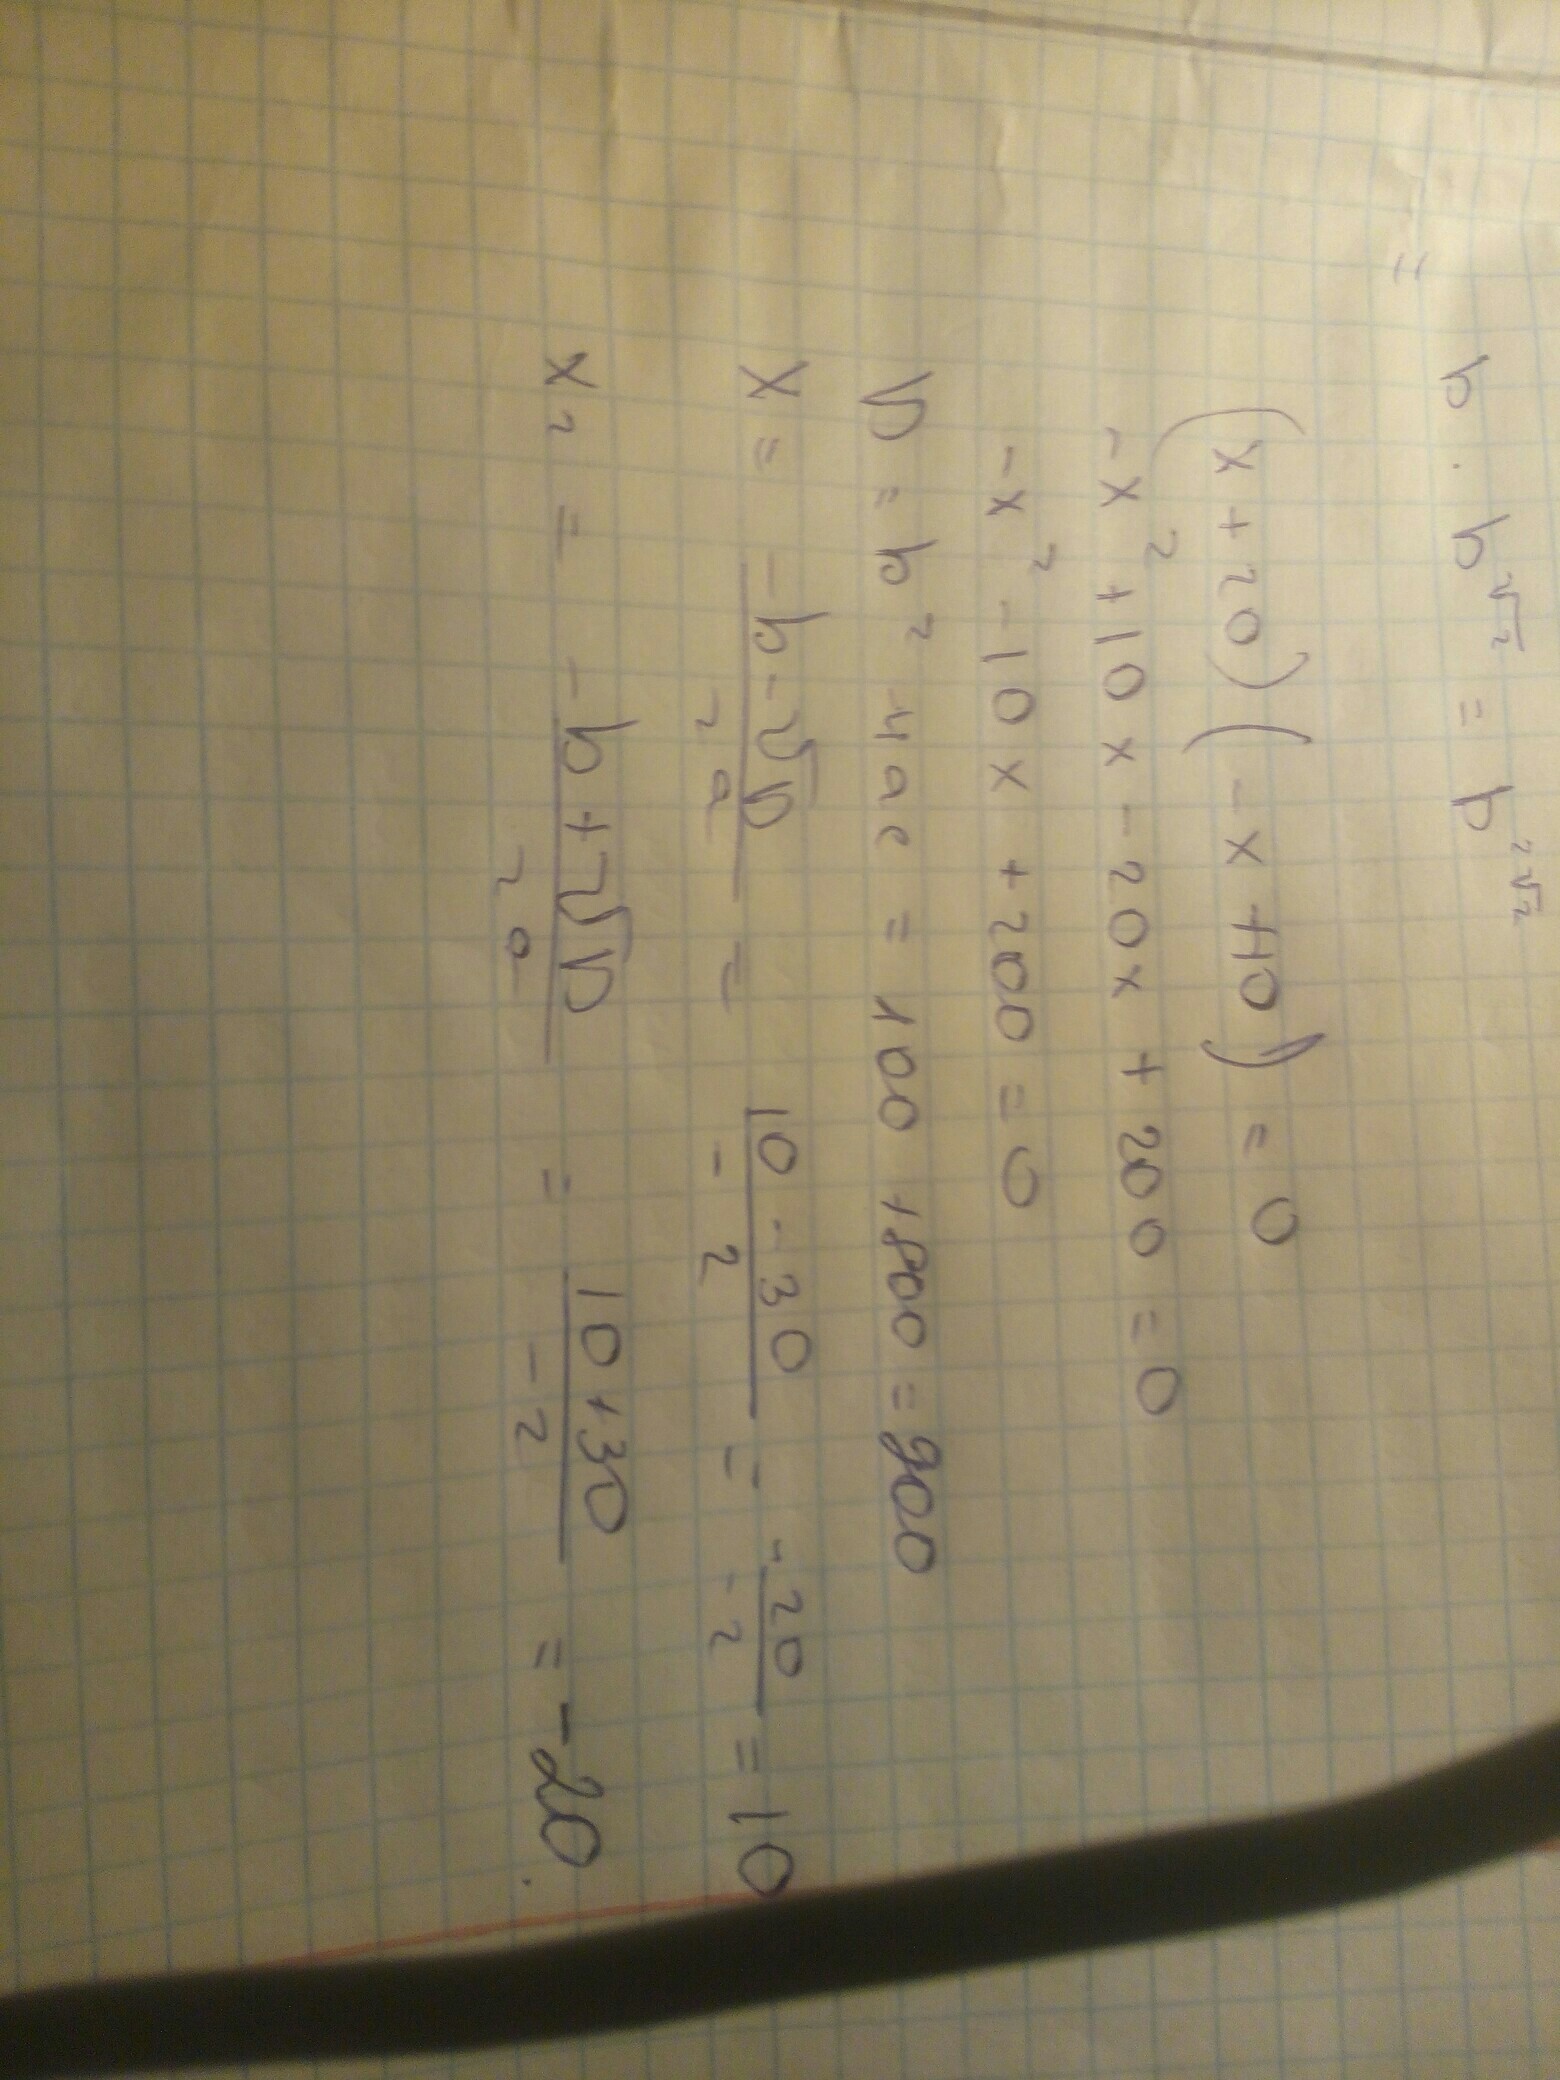 b · b^√2 = b^2√2
=
(x + 20)(-x + 10) = 0
-x² + 10x - 20x + 200 = 0
-x² - 10x + 200 = 0
D = b² 4ac = 100 + 800 = 900
x = (-b - √D)/2a = (10 - 30)/-2 = -20/-2 = 10
x₂ = (-b + √D)/2a = (10 + 30)/-2 = -20.